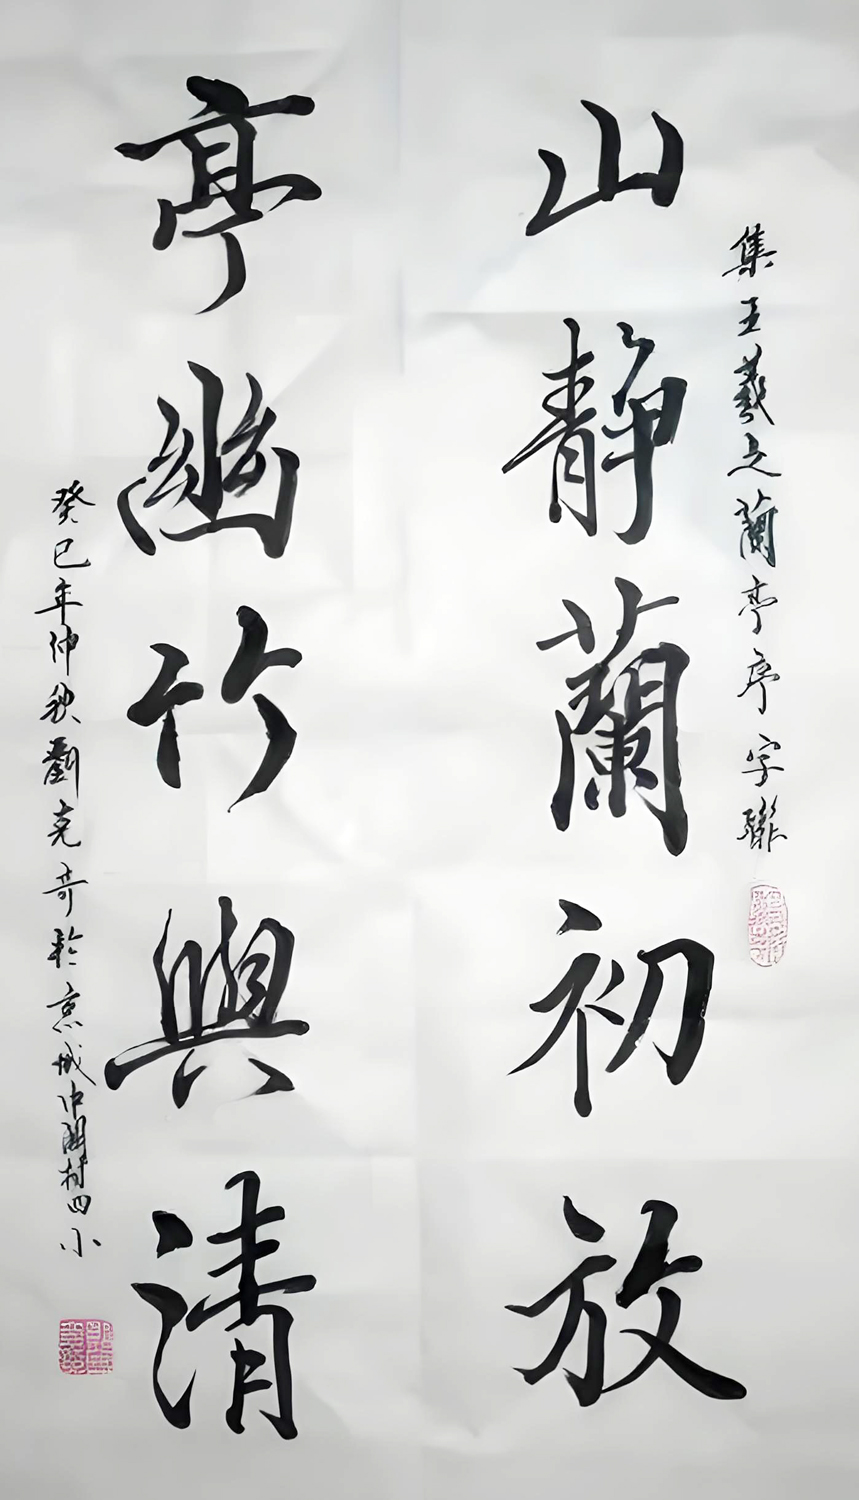 集王羲之蘭亭序字聯
山靜蘭初放
亭幽竹興清
癸巳年仲秋劉克奇於京城中關村四小